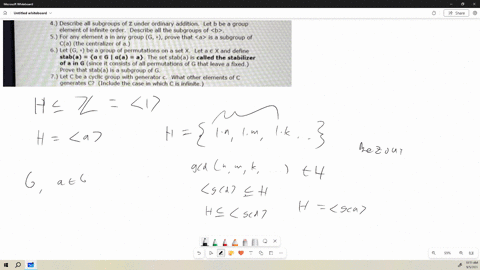 Microsoft Whiteboard
Untitled whiteboard
4.) Describe all subgroups of Z under ordinary addition. Let b be a group
element of infinite order. Describe all the subgroups of <b>.
5.) For any element a in any group (G, ∘), prove that <a> is a subgroup of
C(a) (the centralizer of a.)
6.) Let (G, ∘) be a group of permutations on a set X. Let a ∈ X and define
stab(a) = {α ∈ G | α(a) = a}. The set stab(a) is called the stabilizer
of a in G (since it consists of all permutations of G that leave a fixed.)
Prove that stab(a) is a subgroup of G.
7.) Let C be a cyclic group with generator c. What other elements of C
generates C? (Include the case in which C is infinite.)
H ≤ ℤ = <1>
H = <a>
H = { 1·n, 1·m, 1·k . . . }
Bezout
gcd(n, m, k, ) ∈ H
<gcd> ≤ H
G, a ∈ G
H ≤ <gcd>
H = <gcd>